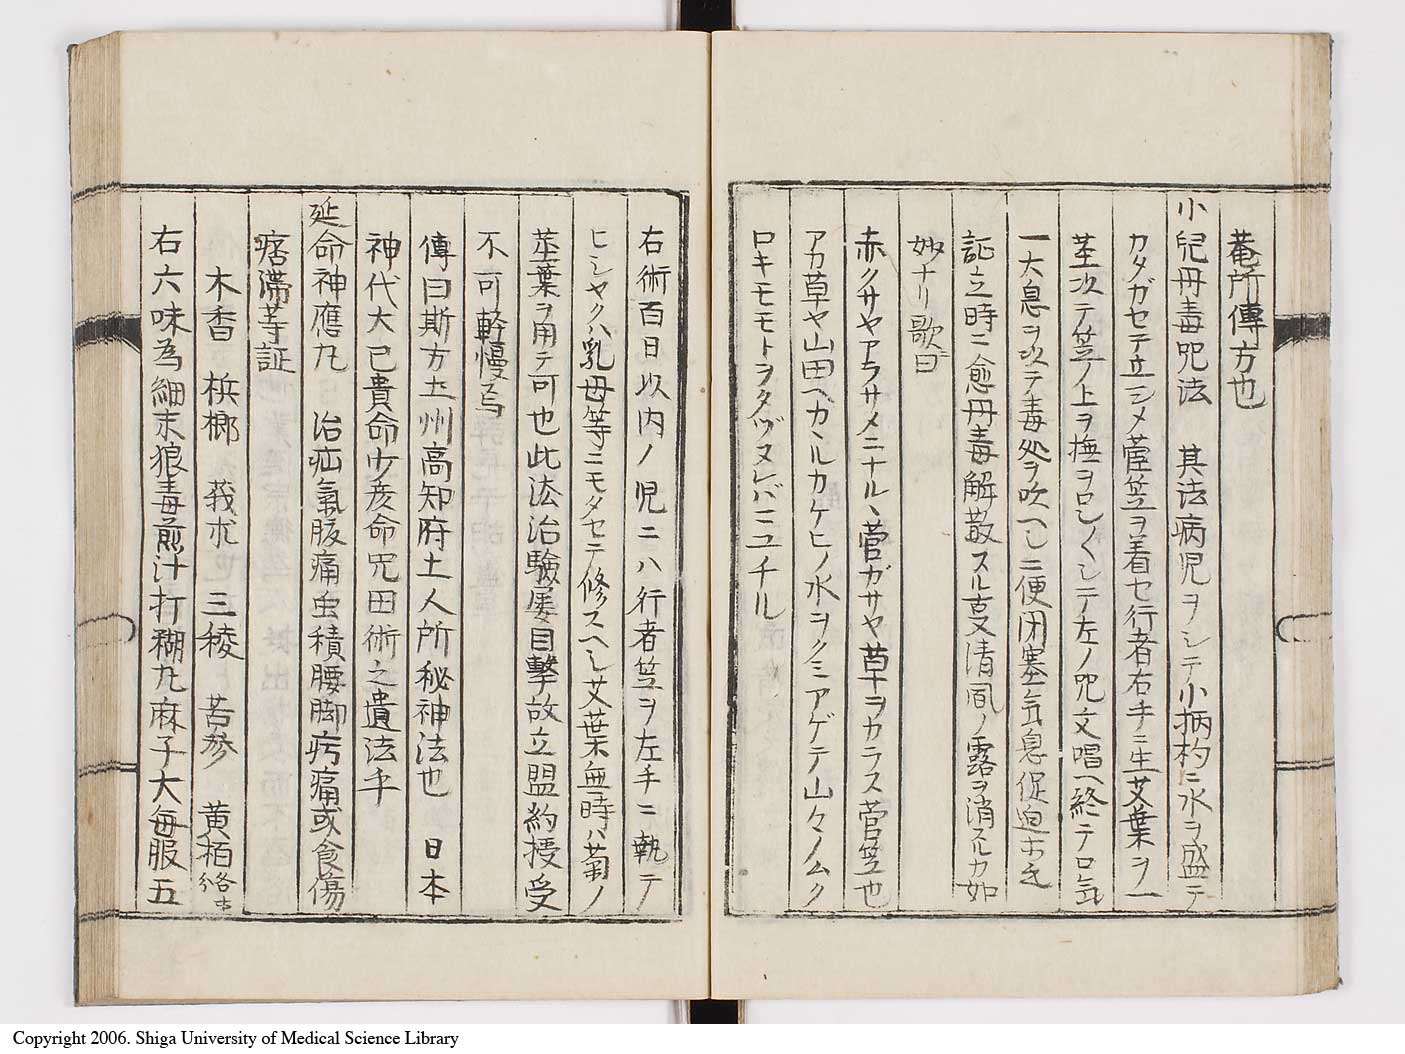 菴所傳方也
小兒丹毒咒法　其法病児ヲシテ小柄杓ニ水ヲ盛テ
カタガセテ立シメ菅笠ヲ着セ行者右手ニ生艾葉ヲ一
茎次テ笠ノ上ヲ撫ヲロシ〱シテ左ノ咒文唱ヘ終テ口気
一大息ヲ次テ毒処ヲ吹ヘシ二便閉塞気息促迫ホ之
証立時ニ愈丹毒解散スル支清風ノ露ヲ消スルカ如
妙ナリ歌ニ曰
赤クサヤアラサメニナルヽ菅ガサヤ草ヲカラス菅笠也
アカ草ヤ山田ヘカヽルカケヒノ水ヲクミアゲテ山々ノムク
ロキモモトヲタヅヌレバミユチル
右術百日以内ノ児ニハ行者笠ヲ左手ニ執テ
ヒシヤクハ乳母等ニモタセテ修スヘシ艾葉無時ハ菊ノ
茎葉ヲ用テ可也此法治驗屡目擊故立盟約授受
不可軽慢焉
傳曰斯方土州高知府士人所秘神法也　日本
神代大已貴命少彦命咒田術之遺法乎
延命神應丸　治疝氣腹痛虫積腰脚疞痛或食傷
痞滞等証
木香　梹榔　莪朮　三稜　苦参　黄栢各等分
右六味為細末狼毒煎汁打糊丸麻子大毎服五
Copyright 2006. Shiga University of Medical Science Library